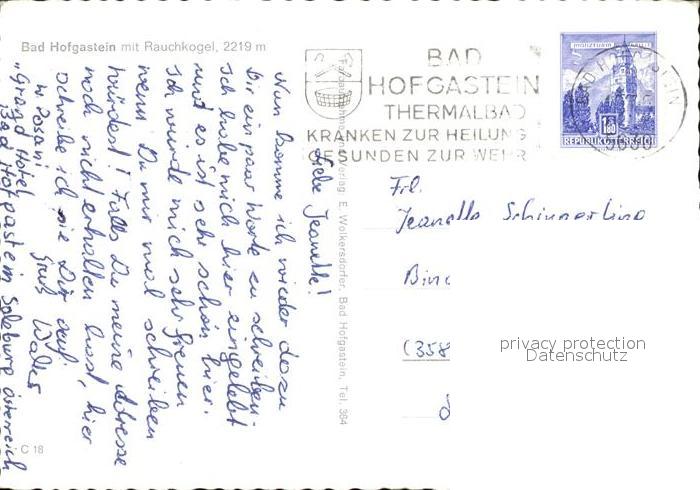 Bad Hofgastein mit Rauchkogel, 2219 m
BAD
HOFGASTEIN
THERMALBAD
KRANKEN ZUR HEILUNG
GESUNDEN ZUR WEHR
MÜNZTURM
1.80
REPUBLIK ÖSTERREICH
BAD HOFGASTEIN
Verlag E. Wolkersdorfer, Bad Hofgastein, Tel. 364
Liebe Jeanette!
Nun komme ich wieder dazu
Dir ein paar Worte zu schreiben.
Ich habe mich hier eingelebt
und es ist sehr schön hier.
Ich würde mich sehr freuen
wenn Du mir mal schreiben
würdest! Falls Du meine Adresse
noch nicht erhalten hast, hier
schreibe ich sie Dir auf.
Gruß Walter
"Grand Hotel
Bad Hofgastein Salzburg Österreich
Frl.
Jeanette
(358
privacy protection
Datenschutz
C 18